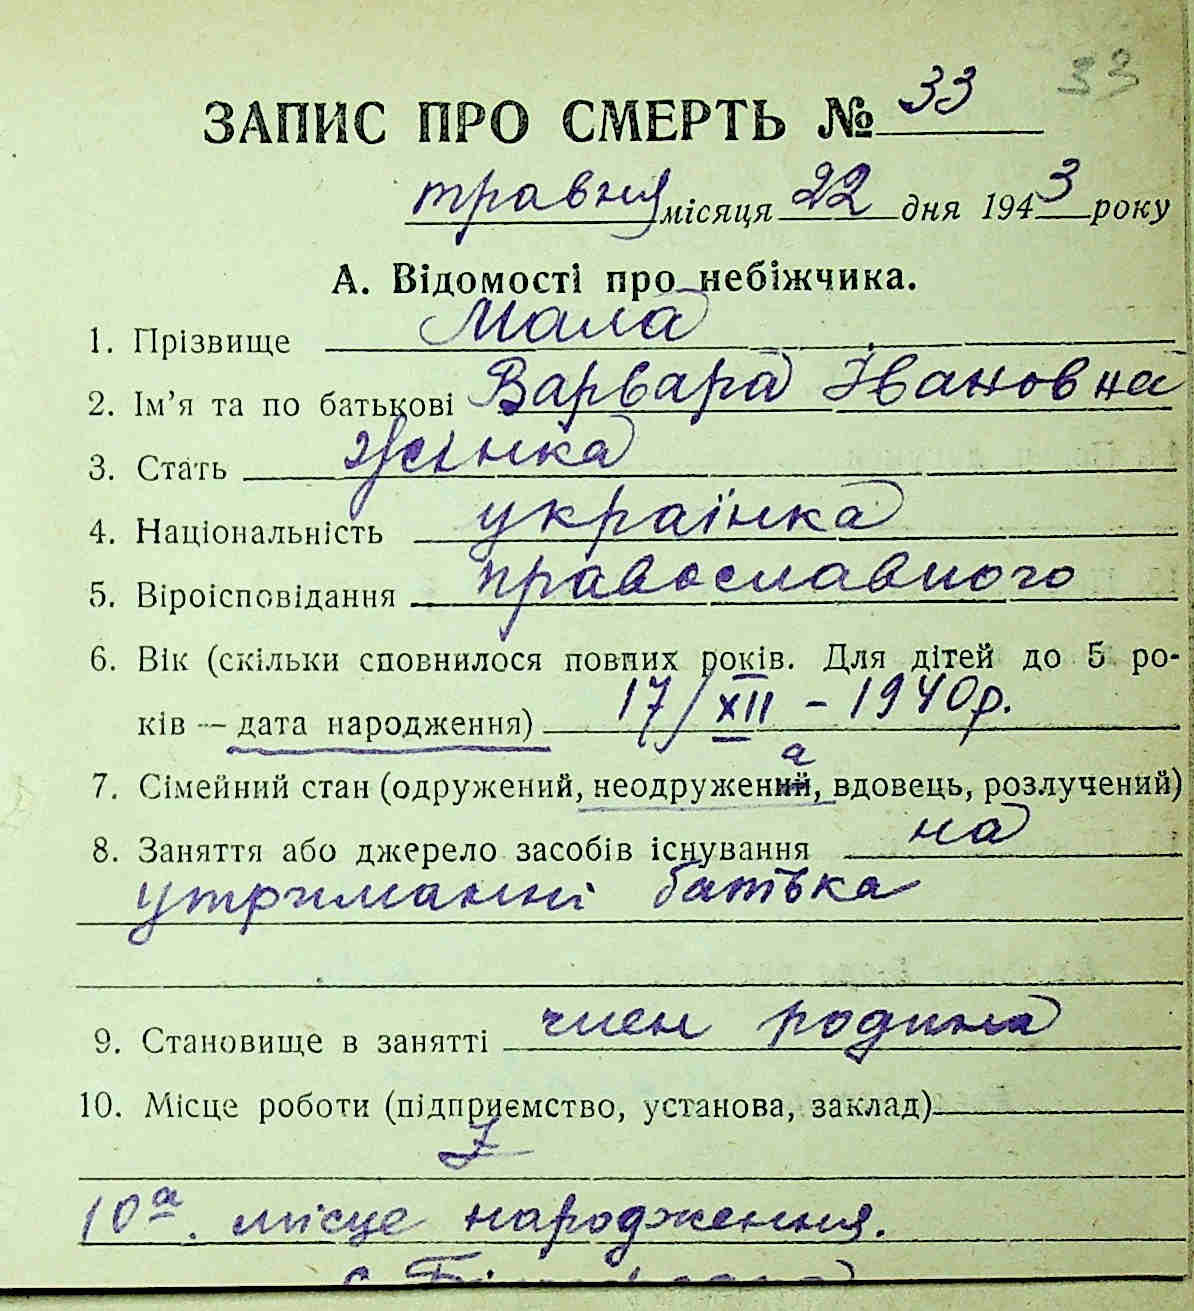 33
ЗАПИС ПРО СМЕРТЬ № 33
травня місяця 22 дня 1943 року
А. Відомості про небіжчика.
1. Прізвище Мала
2. Ім'я та по батькові Варвара Івановна
3. Стать жінка
4. Національність українка
5. Віроісповідання православного
6. Вік (скільки сповнилося повних років. Для дітей до 5 ро-
ків — дата народження) 17/XII - 1940р.
а
7. Сімейний стан (одружений, неодружений, вдовець, розлучений)
8. Заняття або джерело засобів існування на
утриманні батька
9. Становище в занятті член родина
10. Місце роботи (підприємство, установа, заклад)
10а. місце народження.
с.